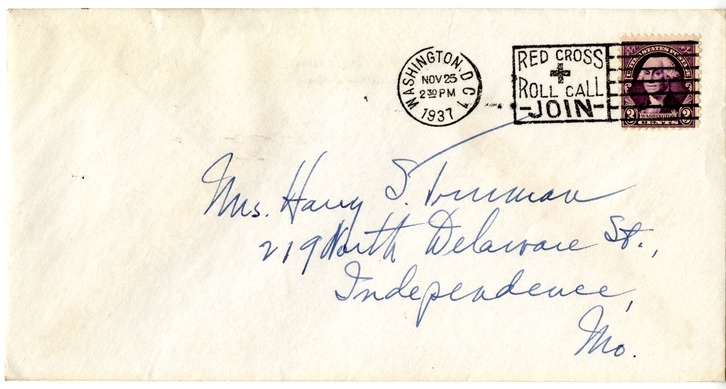 WASHINGTON, D.C. 1
NOV 25
2 30 PM
1937
RED CROSS
ROLL CALL
-JOIN-
UNITED STATES POSTAGE
WASHINGTON
3 3
Mrs. Harry S. Truman
219 North Delaware St.,
Independence,
Mo.